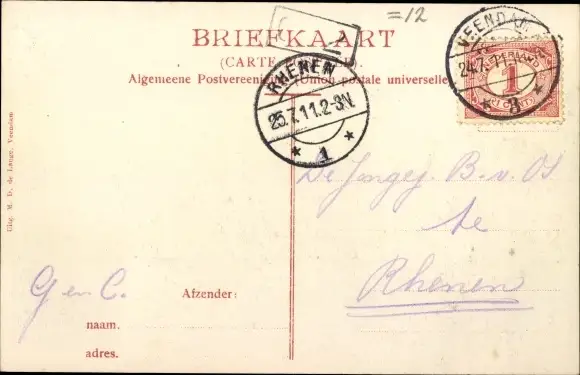 =12
BRIEFKAART
(CARTE
Algemeene Postvereeniging (Union postale universelle
VEENDAM
24.7.11
3
NEDERLAND
1
CENT
RHENEN
25.7.11.2-3N.
1
De B. v. OS
te
Rhenen
G en C.
Afzender:
naam.
adres.
Uitg. M. D. de Lange, Veendam